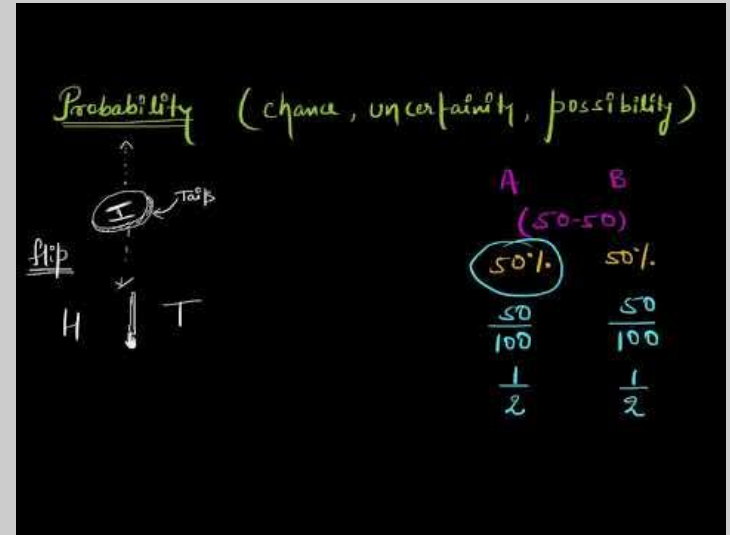 Probability (chance, uncertainity, possibility)
A B
(50-50)
I Tails
flip
50% 50%
H T
50/100 50/100
1/2 1/2